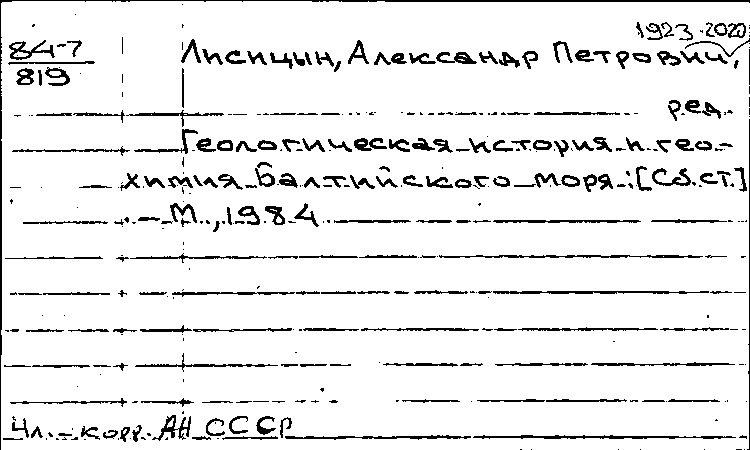 1923-2020
84-7 Лисицын, Александр Петрович,
819
ред.
Геологическая история и гео-
химия Балтийского моря : [Сб. ст.]
. — М., 1984
Чл. - корр. АН СССР